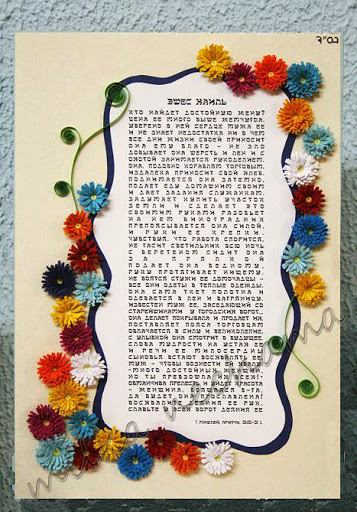 בס"ד
ЭШЕС ХАИЛЬ
КТО НАЙДЕТ ДОСТОЙНУЮ ЖЕНУ?
ЦЕНА ЕЕ МНОГО ВЫШЕ ЖЕМЧУГОВ.
УВЕРЕНО В НЕЙ СЕРДЦЕ МУЖА ЕЕ
И НЕ ЗНАЕТ НЕДОСТАТКА НИ В ЧЕМ
ВСЕ ДНИ ЖИЗНИ СВОЕЙ ПРИНОСИТ
ОНА ЕМУ БЛАГО - НЕ ЗЛО
ДОБЫВАЕТ ОНА ШЕРСТЬ И ЛЕН И С
ОХОТОЙ ЗАНИМАЕТСЯ РУКОДЕЛИЕМ.
ОНА, ПОДОБНО КОРАБЛЯМ ТОРГОВЫМ,
ИЗДАЛЕКА ПРИНОСИТ СВОЙ ХЛЕБ.
ПОДНИМАЕТСЯ ОНА ЗАТЕМНО,
ПОДАЕТ ЕДУ ДОМАШНИМ СВОИМ
И ДАЕТ ЗАДАНИЯ СЛУЖАНКАМ.
ЗАДУМАЕТ КУПИТЬ УЧАСТОК
ЗЕМЛИ И СДЕЛАЕТ ЭТО
СВОИМИ РУКАМИ РАЗОБЬЕТ
НА НЕМ ВИНОГРАДНИК
ПРЕПОЯСЫВАЕТСЯ ОНА СИЛОЙ,
И РУКИ ЕЕ КРЕПКИ.
ЧУВСТВУЯ, ЧТО РАБОТА СПОРИТСЯ,
НЕ ГАСИТ СВЕТИЛЬНИК ВСЮ НОЧЬ
С ВЕРЕТЕНОМ СИДИТ ОНА
ЗА ПРЯЛКОЙ
ПОДАЕТ ОНА БЕДНОМУ,
РУКУ ПРОТЯГИВАЕТ НИЩЕМУ.
НЕ БОЯТСЯ СТУЖИ ЕЕ ДОМОЧАДЦЫ -
ВСЕ ОНИ ОДЕТЫ В ТЕПЛЫЕ ОДЕЖДЫ.
ОНА САМА ТКЕТ ПОЛОТНА И
ОДЕВАЕТСЯ В ЛЕН И БАГРЯНИЦУ.
ИЗВЕСТЕН МУЖ ЕЕ, ЗАСЕДАЮЩИЙ СО
СТАРЕЙШИНАМИ У ГОРОДСКИХ ВОРОТ.
ОНА ДЕЛАЕТ ПОКРЫВАЛА И ПРОДАЕТ ИХ,
ПОСТАВЛЯЕТ ПОЯСА ТОРГОВЦАМ
ОБЛАЧАЕТСЯ В СИЛУ И ВЕЛИКОЛЕПИЕ,
С УЛЫБКОЙ ОНА СМОТРИТ В БУДУЩЕЕ.
СЛОВА МУДРОСТИ НА УСТАХ ЕЕ
И РЕЧИ ЕЕ МИЛОСЕРДНЫ
СЫНОВЬЯ ВСТАЮТ ВОСХВАЛЯТЬ ЕЕ,
МУЖ - ЧТОБЫ ВОЗНЕСТИ ЕЙ ХВАЛУ:
-МНОГО ДОСТОЙНЫХ ЖЕНЩИН,
НО ТЫ ПРЕВЗОШЛА ИХ ВСЕХ!-
ОБМАНЧИВА ПРЕЛЕСТЬ И КРАСОТА
- ЖЕНЩИНА, БОЯЩАЯСЯ Б-ГА,
ДА БУДЕТ ОНА ПРОСЛАВЛЕНА!
ВОСХВАЛИТЕ ДЕЯНИЯ ЕЕ РУК,
СЛАВЬТЕ У ВСЕХ ВОРОТ ДЕЯНИЯ ЕЕ
( МИШЛЕЙ, ПРИТЧИ,